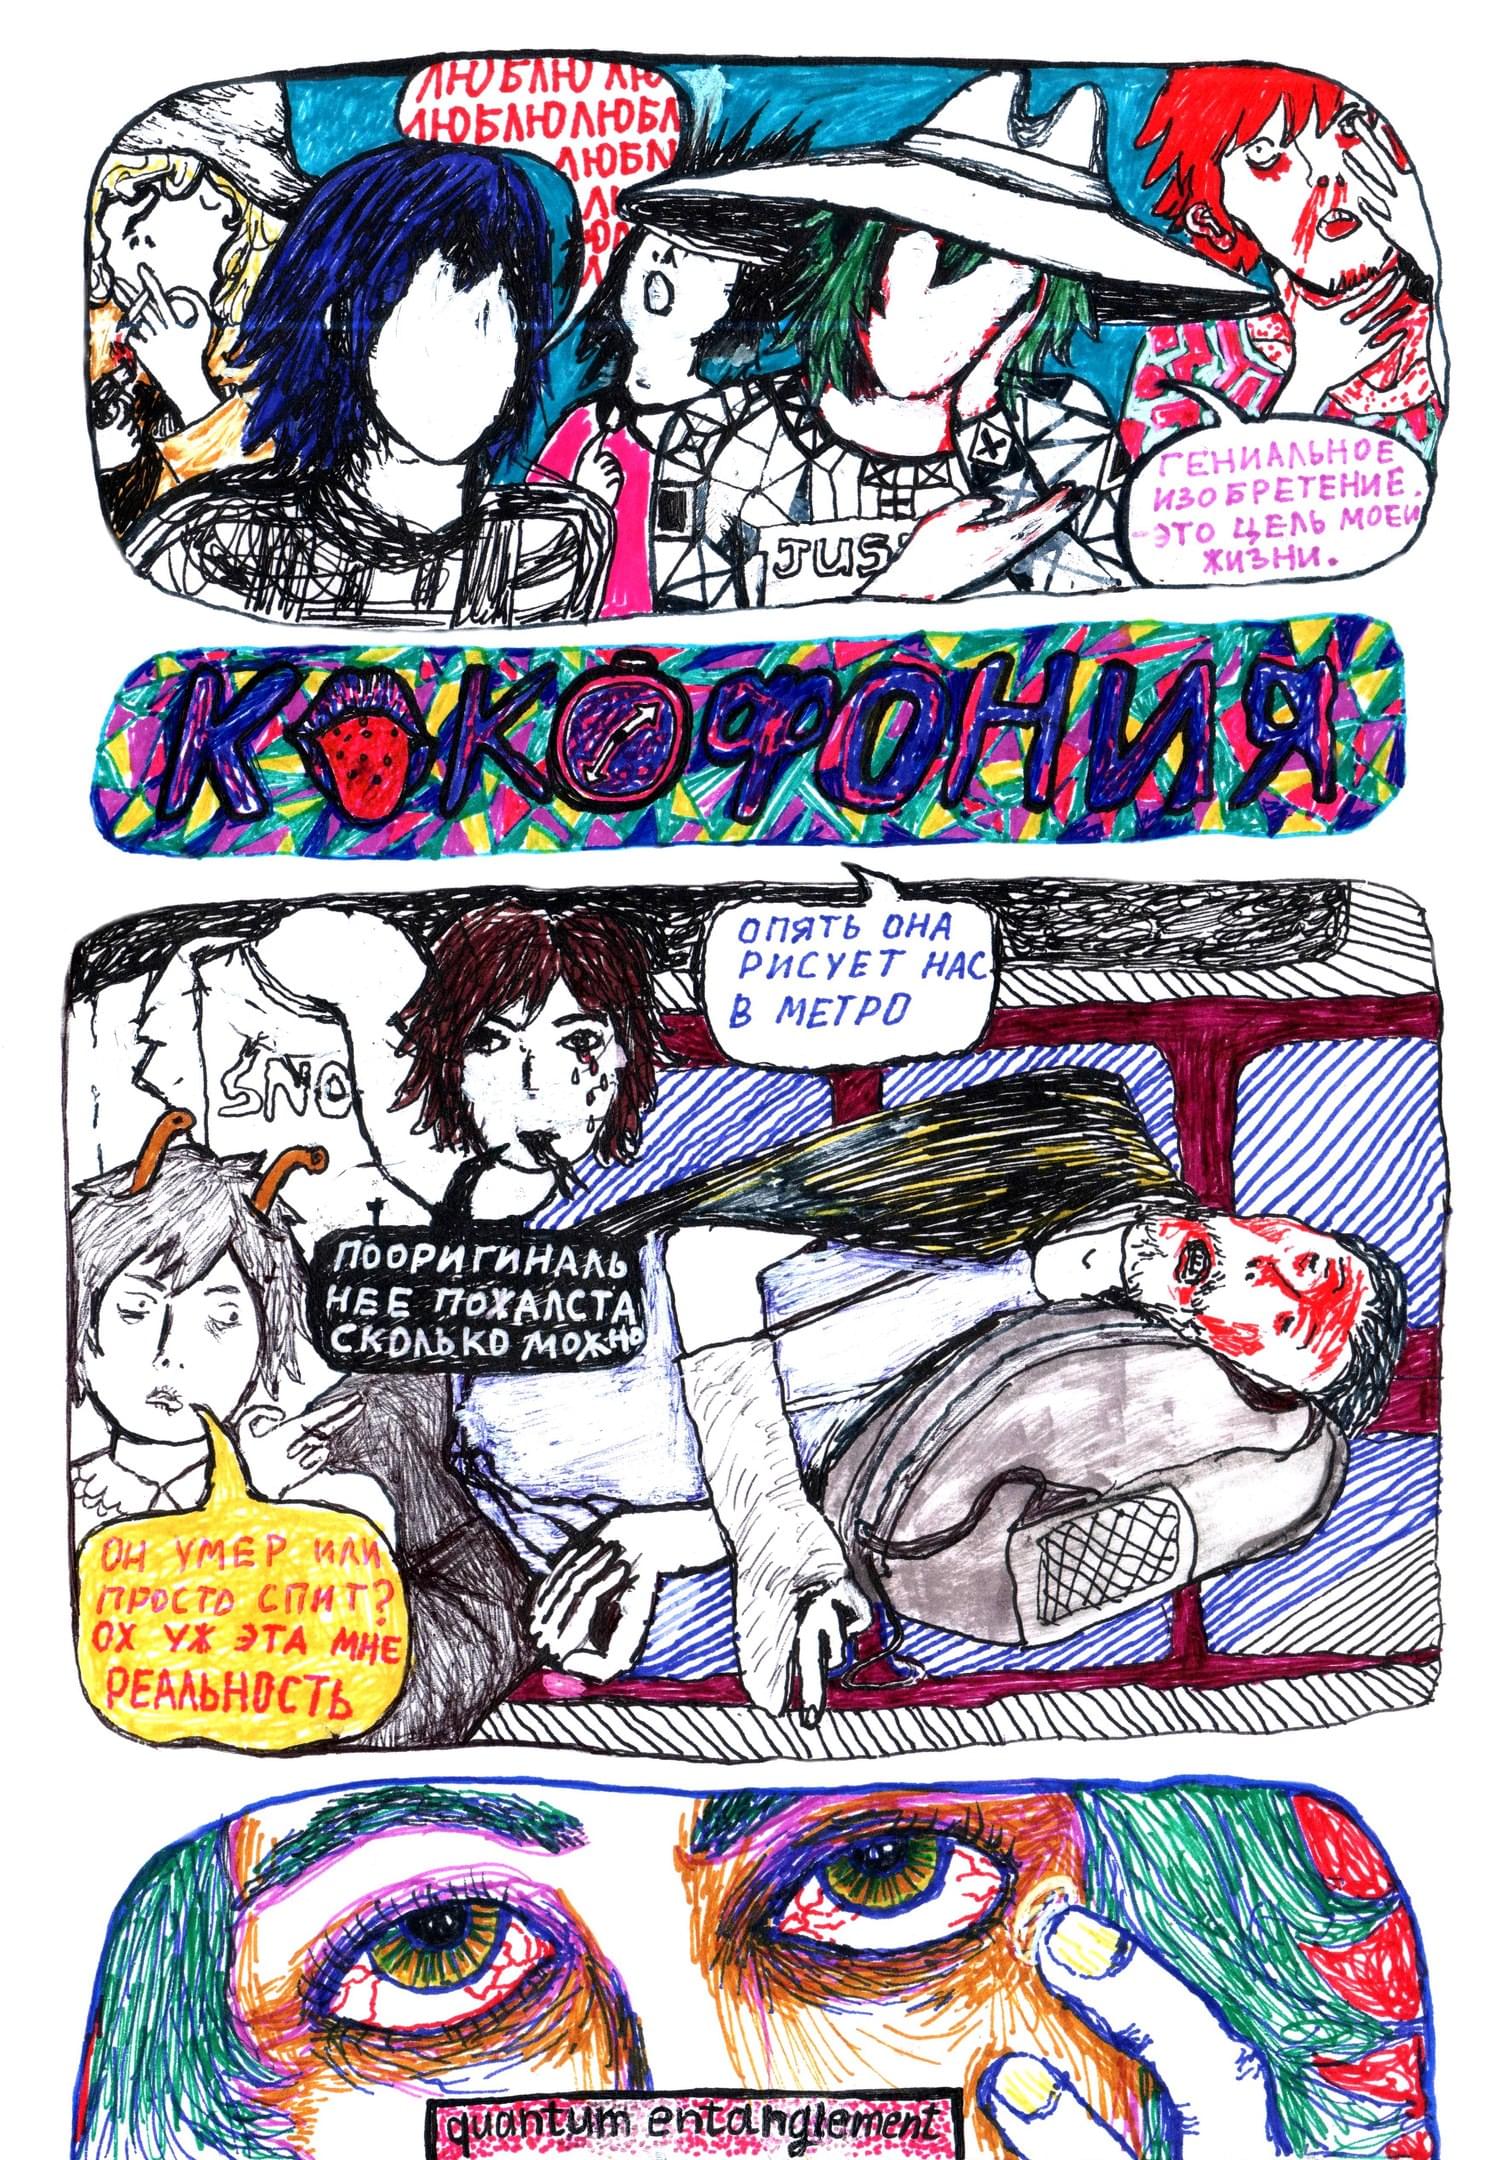 ЛЮБЛЮ ЛЮ
ЛЮБЛЮЛЮБЛ
ЛЮБЛ
JUS
ГЕНИАЛЬНОЕ
ИЗОБРЕТЕНИЕ.
-ЭТО ЦЕЛЬ МОЕЙ
ЖИЗНИ.
КОКОФОНИЯ
ОПЯТЬ ОНА
РИСУЕТ НАС
В МЕТРО
SNO
ПООРИГИНАЛЬ
НЕЕ ПОЖАЛСТА
СКОЛЬКО МОЖНО
ОН УМЕР ИЛИ
ПРОСТО СПИТ?
ОХ УЖ ЭТА МНЕ
РЕАЛЬНОСТЬ
quantum entanglement